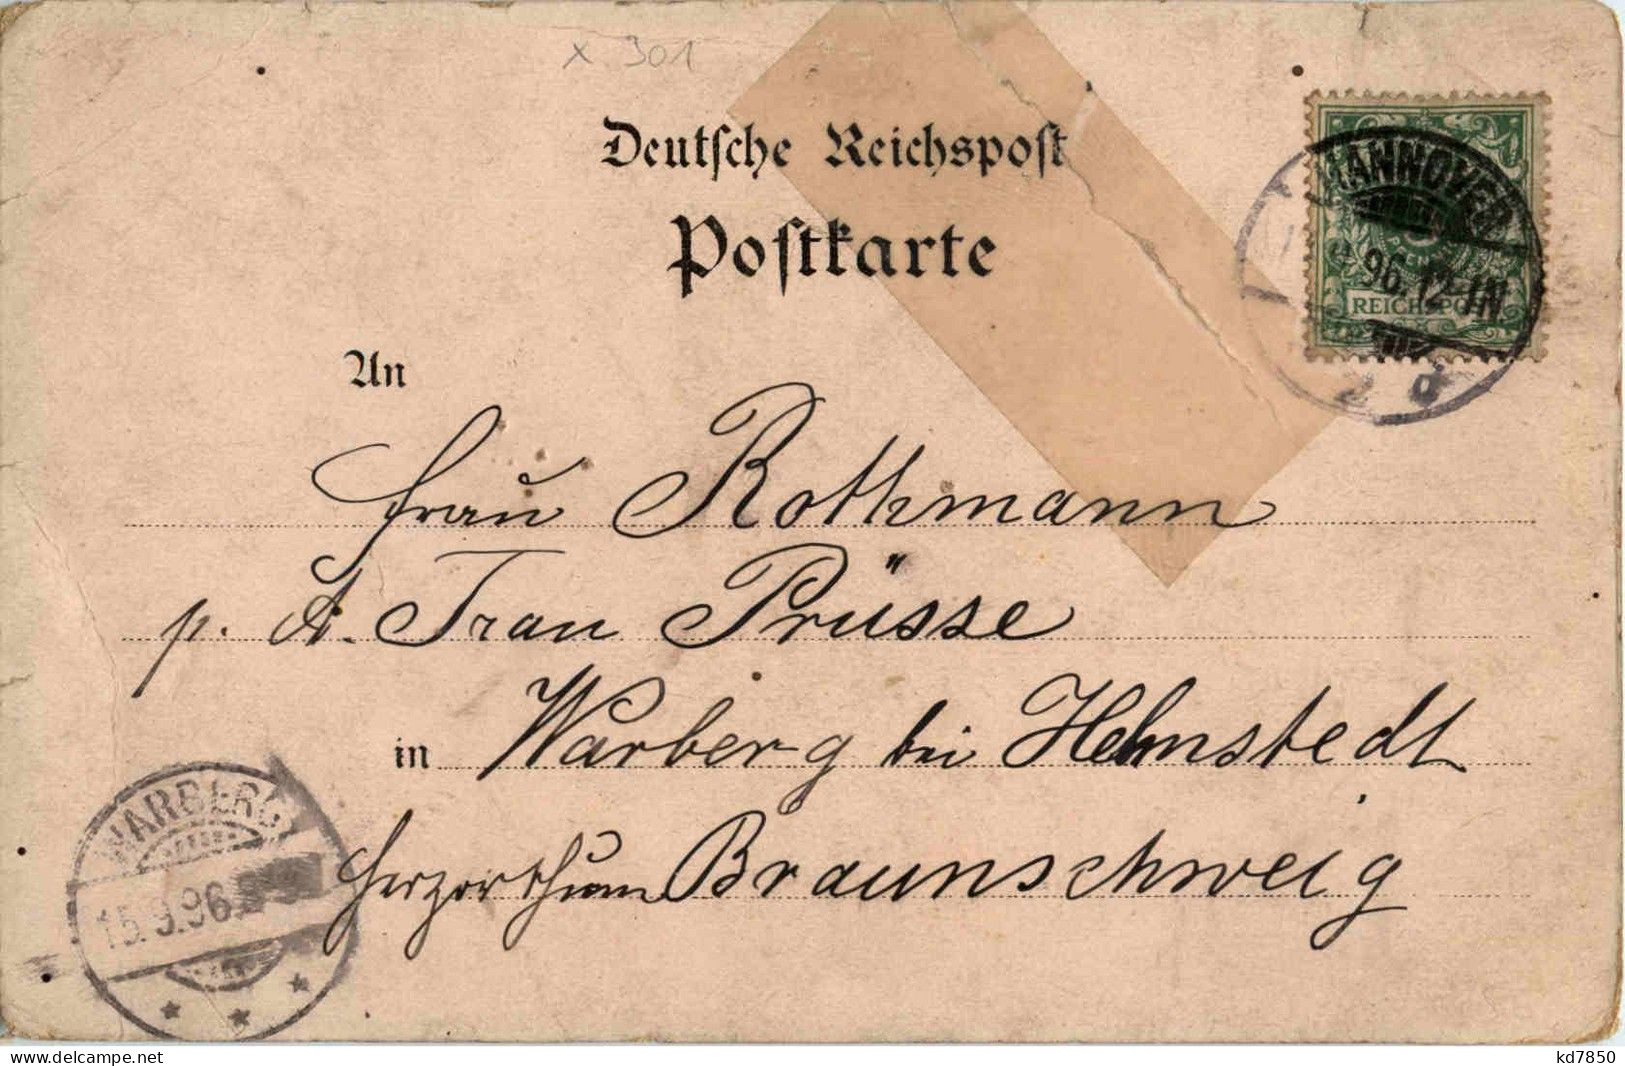 x 301
Deutsche Reichspost
Postkarte
HANNOVER
96.12-1N.
REICHSPOST
An
Frau Rothmann
p. A. Frau Prüsse
in Warberg bei Helmstedt
Herzogthum Braunschweig
WARBERG
15.9.96
delcampe.net
kd7850